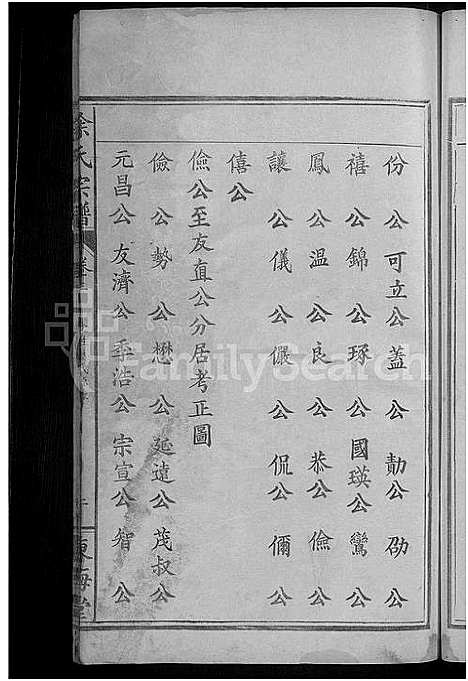 份公可立公蓋公勣公劭公
禧公錦公琢公國瑛公鸞公
鳳公溫公良公恭公儉公
讓公儀公儼公侃公儞公
僖公
儉公至友直公分居考正圖
儉公勢公懋公延遠公茂叔公
元昌公友濟公季浩公宗宣公智公
徐氏宗譜
東海堂
FamilySearch